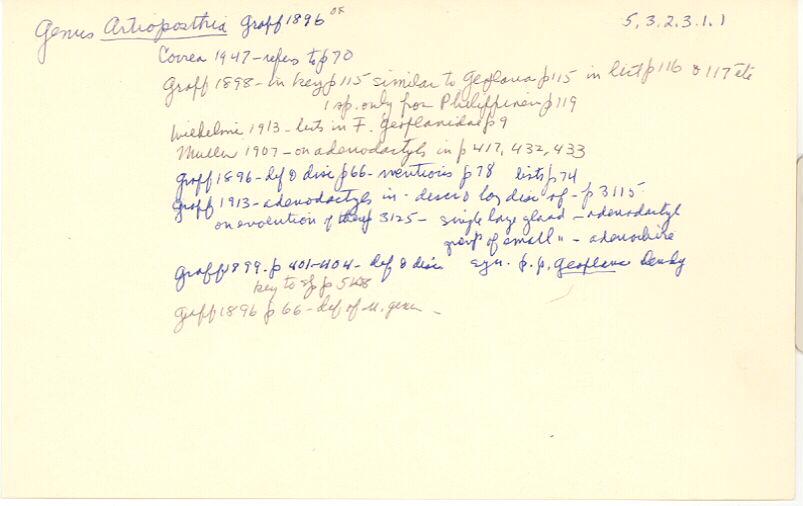 Genus Artioposthia Graff 1896 ok 5.3.2.3.1.1
Correa 1947 - refers to p 70
Graff 1898 - in key p 115 similar to Geoplana p 115 in list p 116 & 117 etc
1 sp. only from Philippines p 119
Wilhelmi 1913 - lists in F. Geoplanidae p 9
Muller 1907 - on adenodactyls in p 417, 432, 433
Graff 1896 - def & disc p 66 - mentions p 78 lists p 74
Graff 1913 - adenodactyls in - descr & log disc of - p 3115
on evolution of p 3125 - single large gland - adenodactyl
group of small " - adenochire
Graff 1899 - p 401-404 - def & disc syn. p.p. Geoplana Dendy
key to sp p 548
Graff 1896 p 66 - def of n. genus -